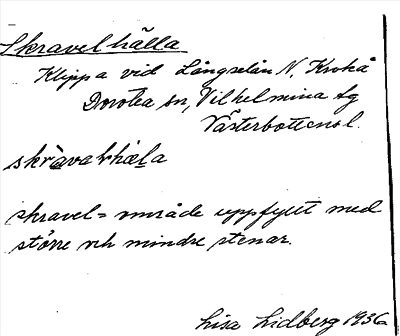 Skravelhälla
Klippa vid Långselån N. Krokå
Dorotea sn, Vilhelmina tg
Västerbottens l.
skràvahhäla
skravel = område uppfyllt med
större och mindre stenar.
Lisa Lidberg 1936